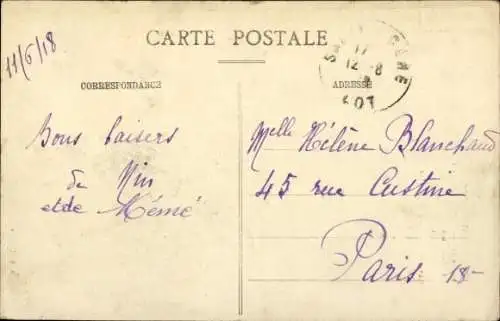 11/6/18
CARTE POSTALE
CORRESPONDANCE
ADRESSE
17
12 -8
LOT
Bons baisers
de Nin
et de Mémé
Melle Hélène Blanchaud
45 rue Custine
Paris 18-